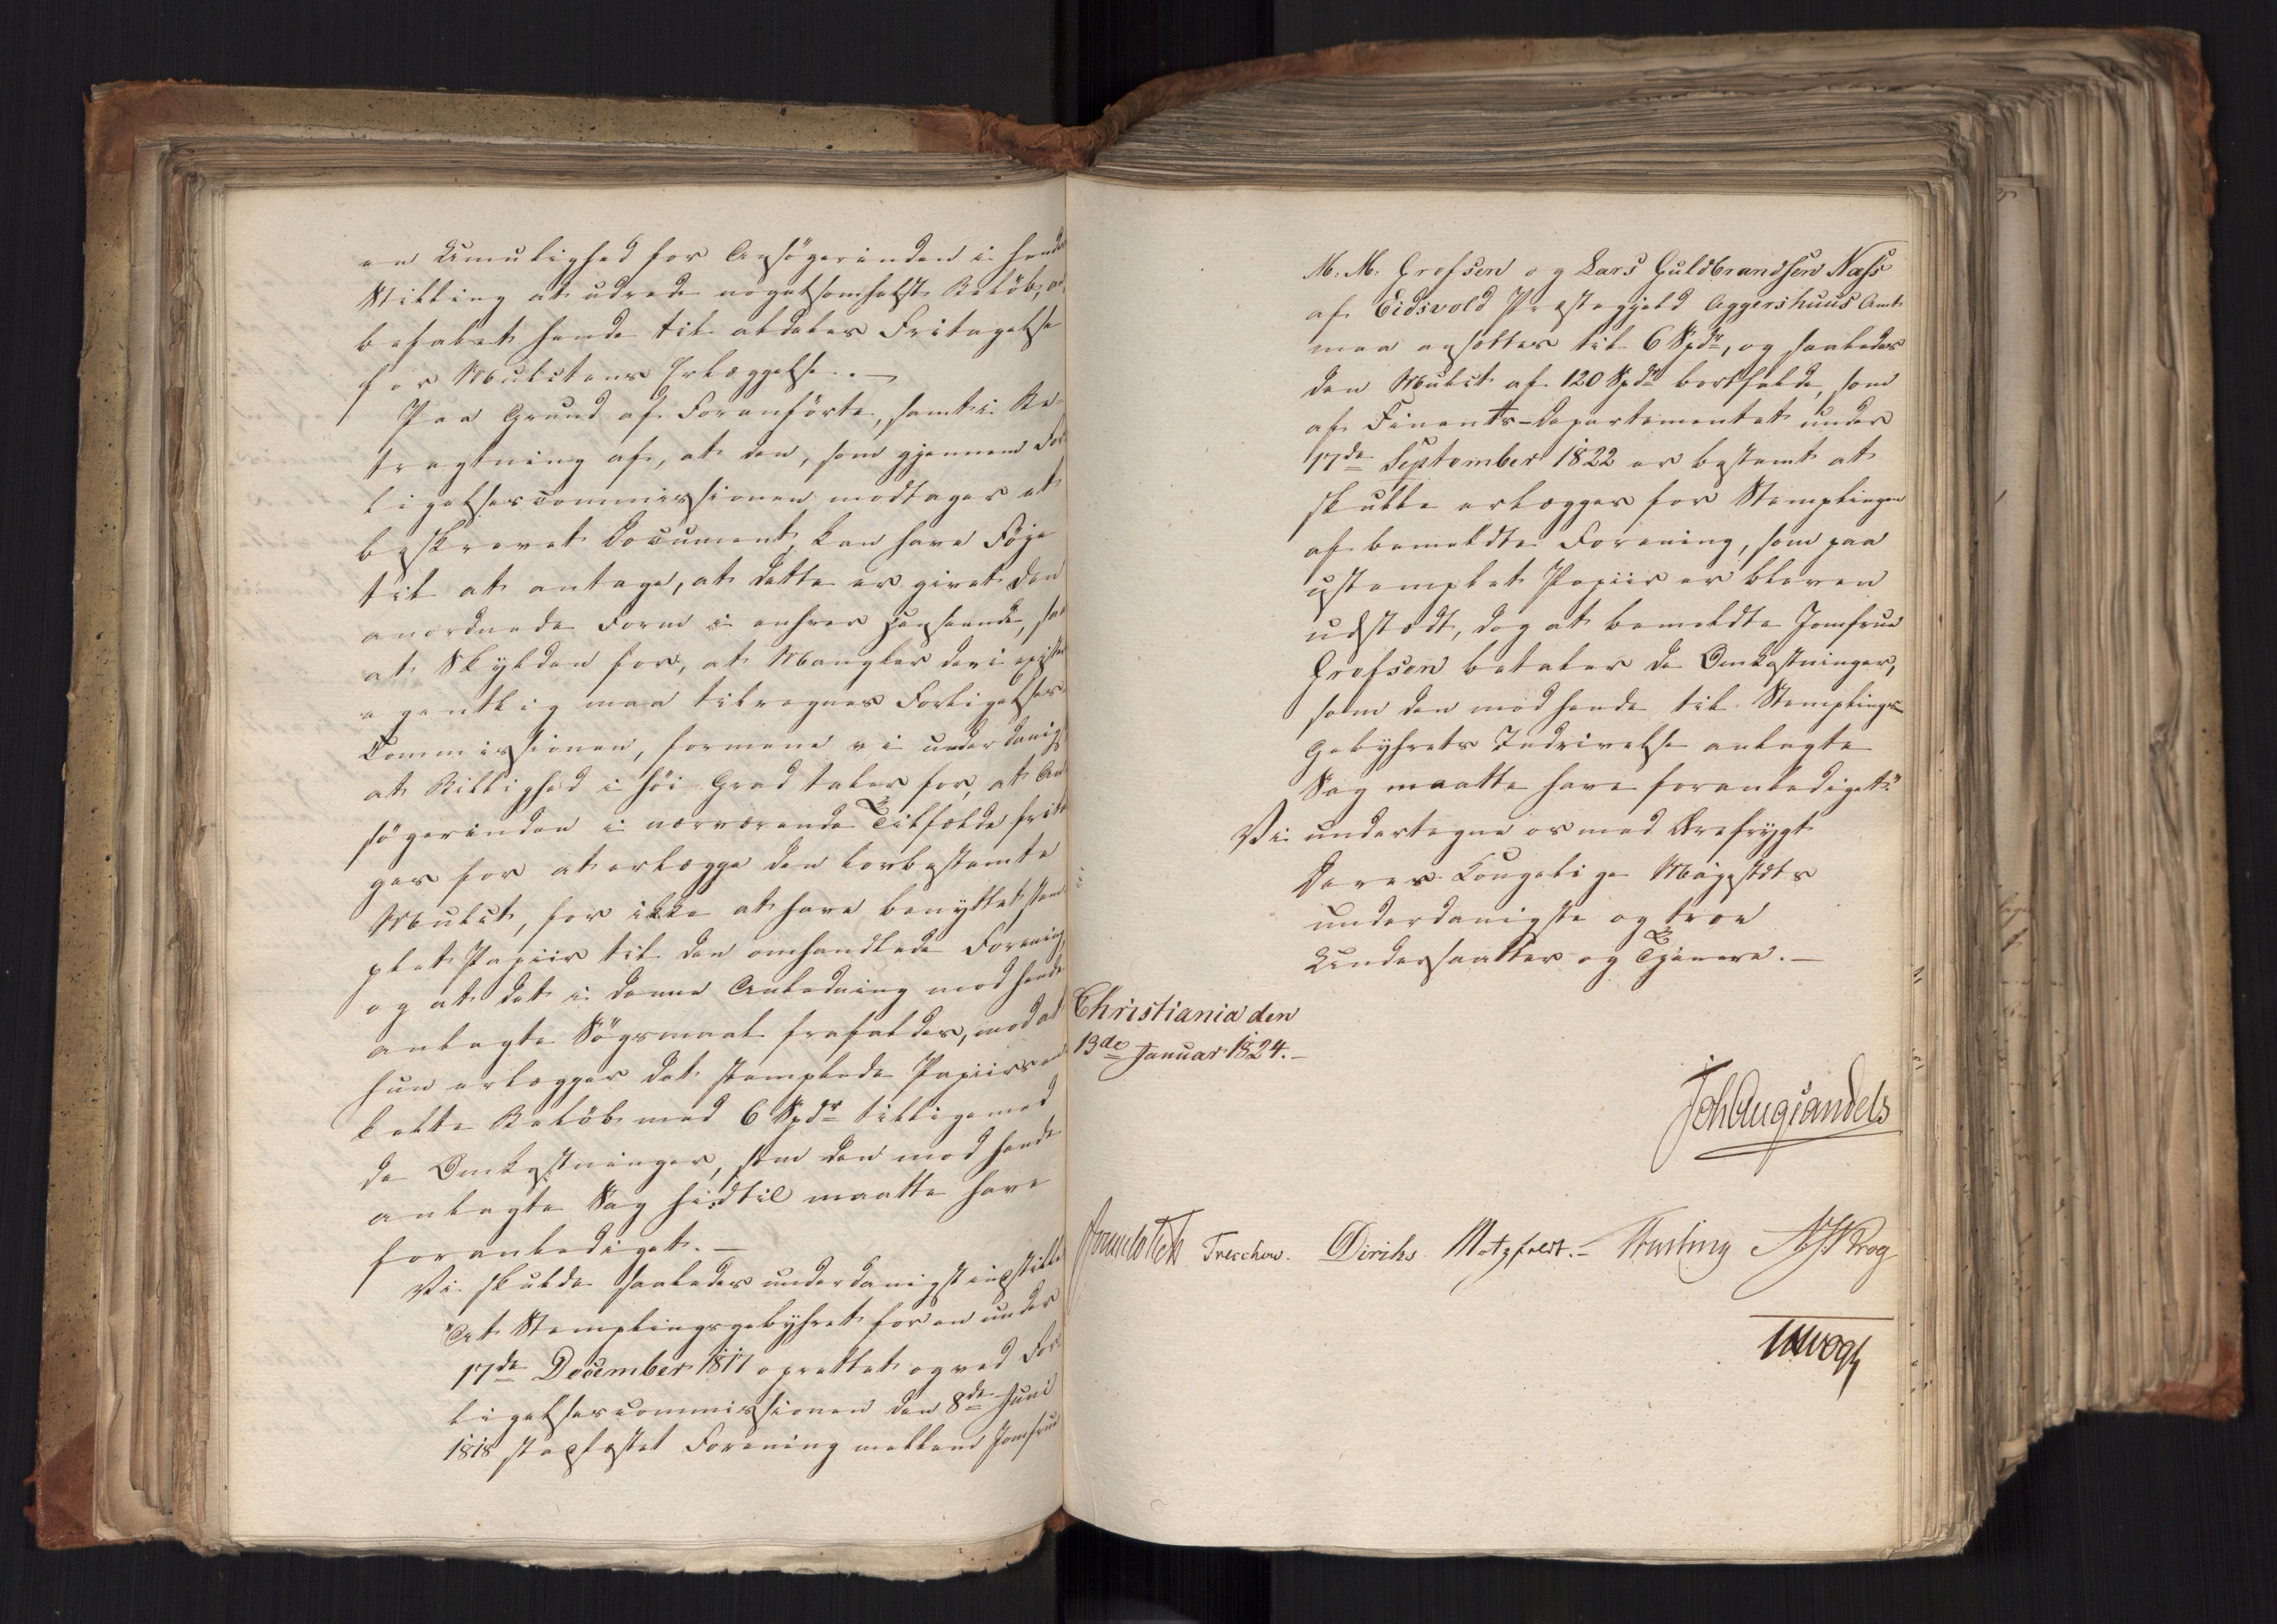 en Umulighed for Ansøgerinden i hendes
Stilling at udrede nogetsomhelst Beløb, an¬
befalet hende til aldeles Fritagelse
for Mulctens Erlæggelse. —
Paa Grund af Foranførte, samt i Be¬
tragtning af, at den, som gjennem For¬
ligelsescommissionen modtager et
beskrevet Document, kan have Føje
til at antage, at dette er givet den
anordnede Form i enhver Henseende, saa
at Skylden for, at Mangler deri existere
egentlig maa tilregnes Forligelses¬
Commissionen, formene vi underdanigst
at Billighed i høi Grad taler for, at An¬
søgerinden i nærværende Tilfælde frita¬
ges for at erlægge den lovbestemte
Mulct, for ikke at have benyttet stem¬
plet Papiir til den omhandlede Forening,
og at det i denne Anledning mod hende
anlagte Søgsmaal frafaldes, mod at
hun erlægger det stemplede Papiirs en¬
kelte Beløb med 6 Spdr tilligemed
de Omkostninger, som den mod hende
anlagte Sag hidtil maatte have
foranlediget. —
Vi skulde saaledes underdanigst indstille:
"At Stemplingsgebyhret for en under
17de December 1817 oprettet og ved For¬
ligelsescommissionen den 8de Juni
1818 stadfæstet Forening mellem Jomfrue
M. M. Grofsen og Lars Guldbrandsen Næss
af Eidsvold Præstegjeld Aggershuus Amt
maa ansættes til 6 Spdr, og saaledes
den Mulct af 120 Spdr bortfalde, som
af Finants-Departementet under
17de September 1822 er bestemt at
skulle erlægges for Stemplingen
af bemeldte Forening, som paa
ustemplet Papiir er bleven
udstædt, dog at bemeldte Jomfrue
Grofsen betaler de Omkostninger,
som den mod hende til Stemplings¬
Gebyhrets Inddrivelse anlagte
Sag maatte have foranlediget."
Vi undertegne os med Ærefrygt
Deres Kongelige Majestæts
underdanigste og troe
Undersaatter og Tjenere. —
Christiania den
13de Januar 1824. —
Joh Aug Sandels
Sommerhielm Treschow. Diriks Motzfeldt. — Fasting N J Krog
Vogt